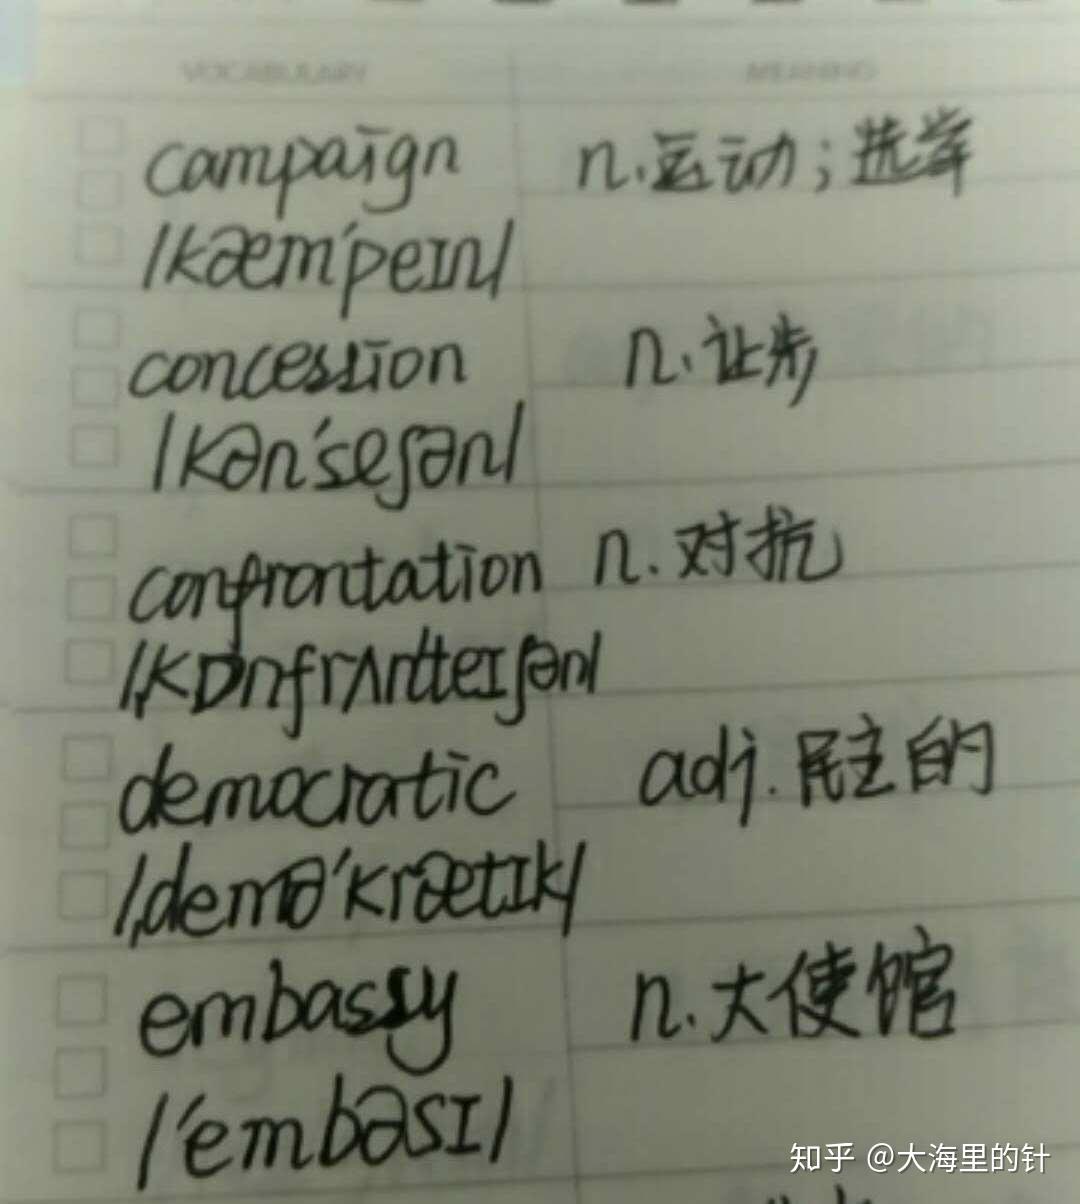 VOCABULARY MEANING
campaign n.运动;选举
/kæm'peɪn/
concession n.让步
/kən'seʃən/
confrontation n.对抗
/ˌkɒnfrʌnteɪʃən/
democratic adj.民主的
/ˌdemə'krætɪk/
embassy n.大使馆
/'embəsɪ/
知乎 @大海里的针